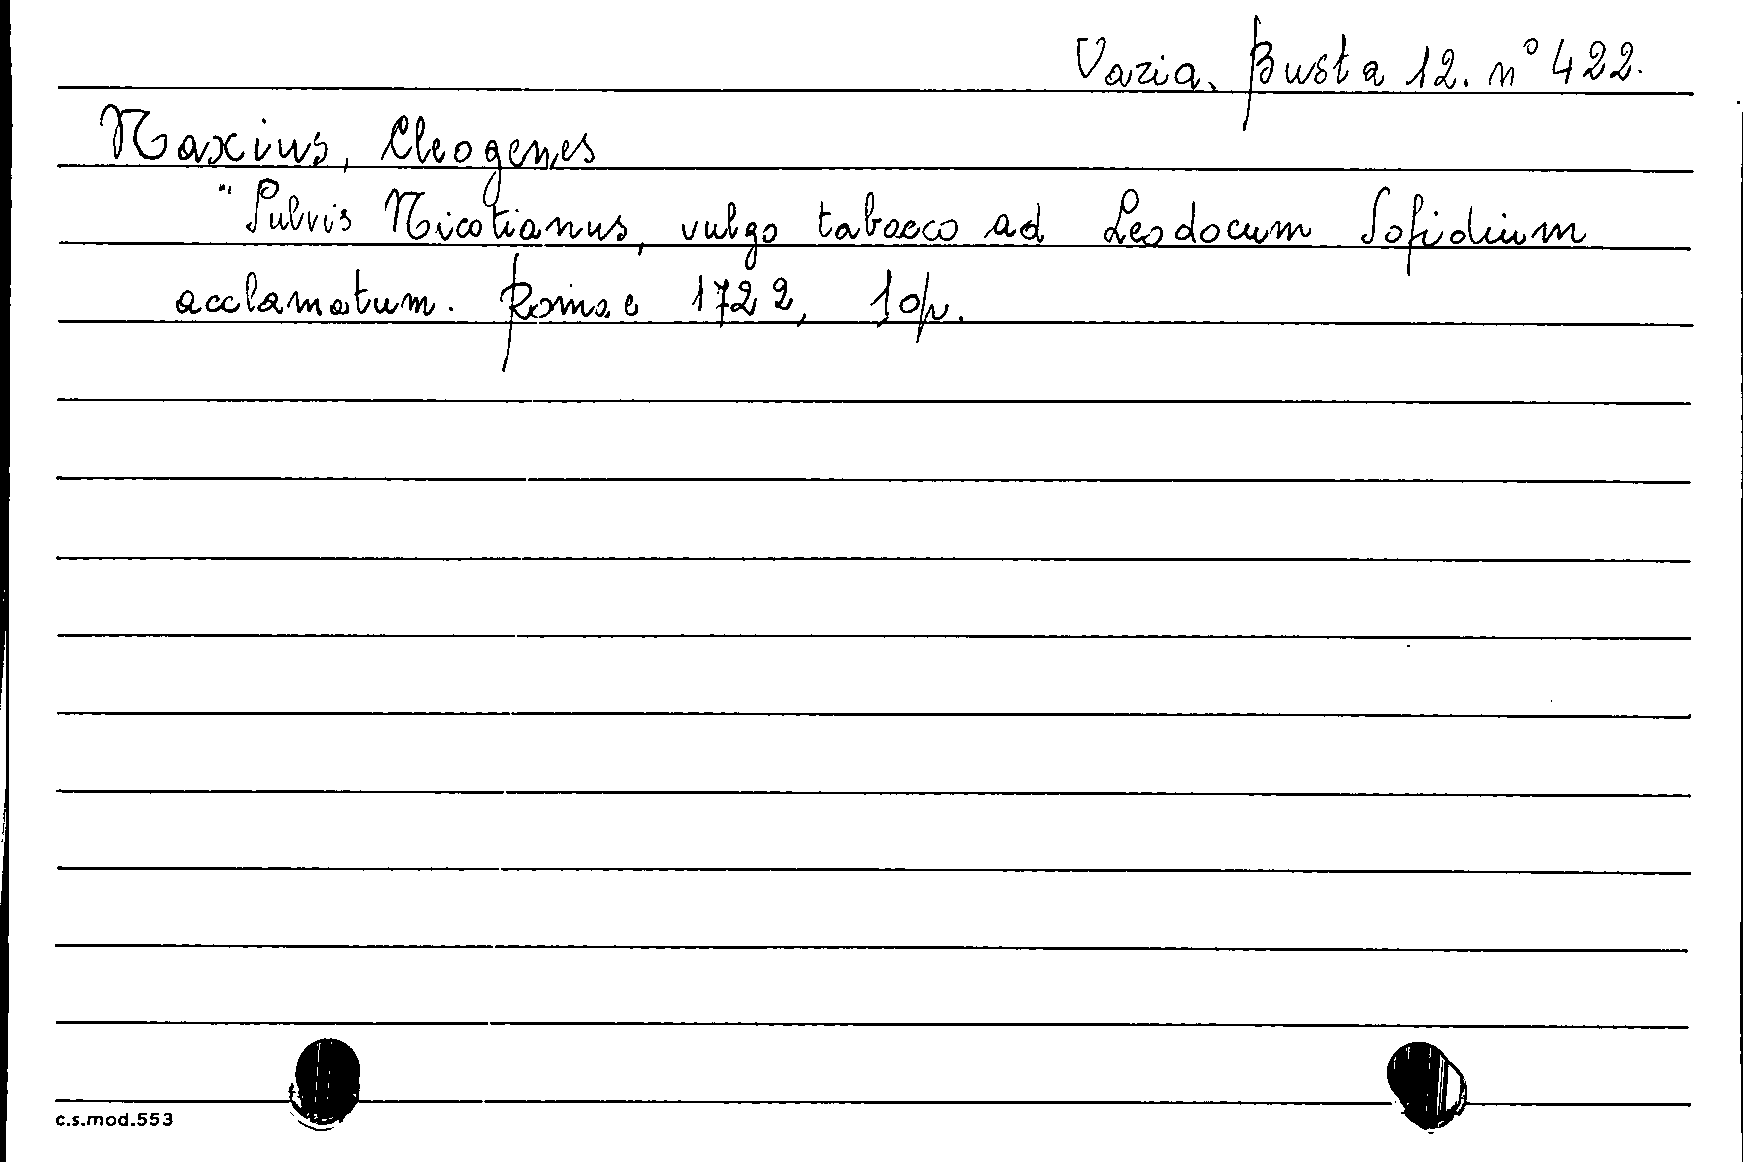 Varia. Busta 12. n° 422.
Naxius, Cleogenes
"Pulvis Nicotianus, vulgo tabacco ad Leodocum Sofidium
acclamatum. Romae 1722, 10p.
c.s.mod.553